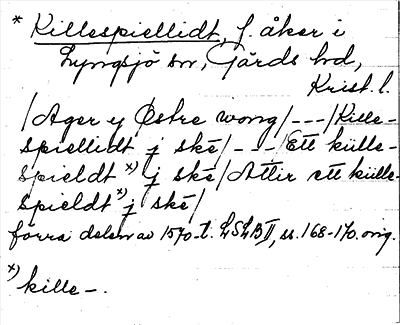 * Killespiellidt, f. åker i
Lyngsjö sn, Gärds hd,
Krist. l.
/Ager y Østre wong/---/Kille-
spiellidt j skè/---/Ett külle-
spieldt x) j skè/Attir ett külle-
spieldt x) j skè/
förra delen av 1570-t. LSLB II, ss. 168-170. orig.
x) kille-.